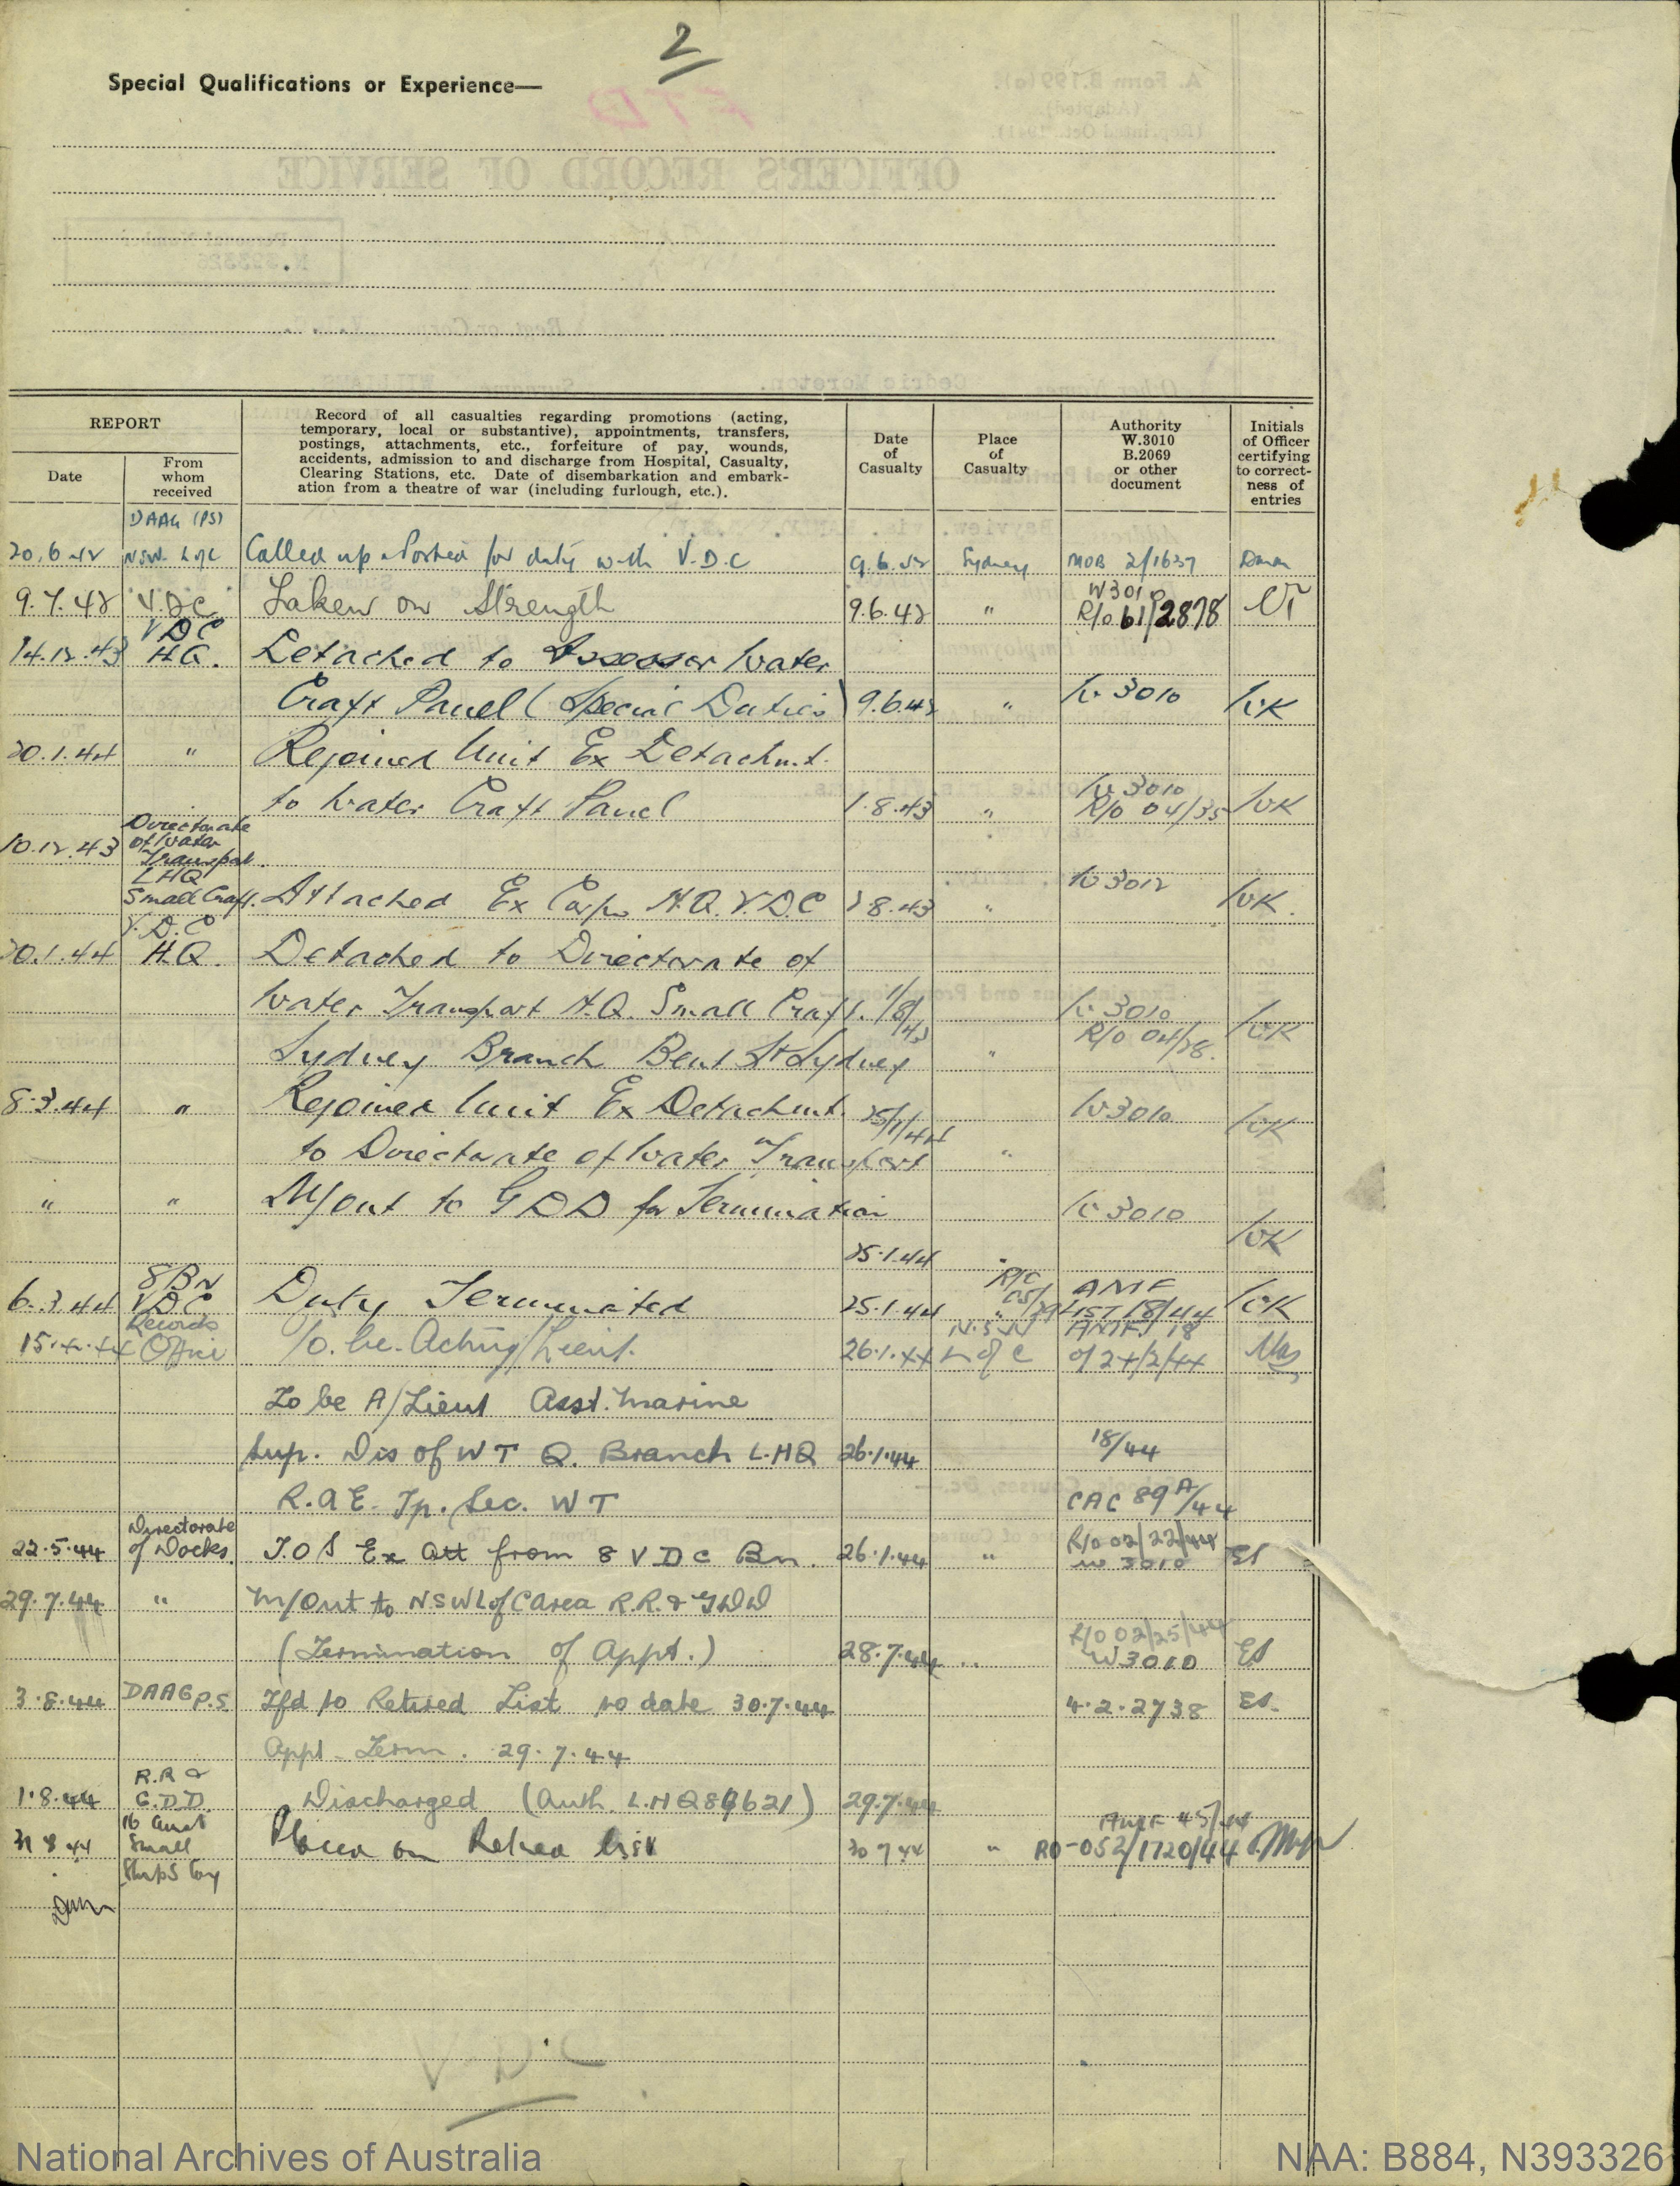 2
Special Qualifications or Experience—
REPORT
Date
From whom received
Record of all casualties regarding promotions (acting,
temporary, local or substantive), appointments, transfers,
postings, attachments, etc., forfeiture of pay, wounds,
accidents, admission to and discharge from Hospital, Casualty,
Clearing Stations, etc. Date of disembarkation and embark-
ation from a theatre of war (including furlough, etc.).
Date of Casualty
Place of Casualty
Authority W.3010 B.2069 or other document
Initials of Officer certifying to correct-ness of entries
DAAG (PS)
20.6.42 NSW L of C Called up & Posted for duty with V.D.C 9.6.42 Sydney MOB 2/1637
W3010
9.7.42 V.D.C. Taken on Strength 9.6.42 " R/o 61/2878
VDC
14.12.43 H.Q. Detached to Assessor Water
Craft Panel (Special Duties) 9.6.42 " W 3010 WK
20.1.44 " Rejoined Unit Ex Detachmt.
W 3010
to Water Craft Panel 1.8.43 " R/o 04/35 WK
Directorate
10.12.43 of Water
Transport
LHQ W 3012
Small Craft. Attached Ex Corps H.Q. V.D.C 8.43 " WK
V.D.C
20.1.44 H.Q. Detached to Directorate of
Water Transport H.Q. Small Craft. 1/8/43 W 3010 WK
Sydney Branch Bent St Sydney " R/o 04/28
8.3.44 " Rejoined Unit Ex Detachmt. 25/1/44 W3010 WK
to Directorate of Water Transport "
" " M/out to G D D for Termination W 3010
25.1.44 " WK
8 BN R/o 05/ AMF
6.3.44 VDC Duty Terminated 25.1.44 " LIST 18/44 WK
Records N.S.W AMF. 18
15.4.44 Office To be Acting/Lieut. 26.1.44 L of C of 24/2/44
To be A/Lieut Asst. Marine
Sup. Dis of W T Q. Branch L.HQ 26.1.44 18/44
R.A.E. Tp. Sec. W T CAC 89A/44
Directorate R/o 02/22/44
22.5.44 of Docks. T.O.S Ex Att from 8 V D C Bn. 26.1.44 " W 3010 ES
29.7.44 " M/Out to NSW L of C area R.R. & GDD
R/o 02/25/44
(Termination of Appt.) 28.7.44 " W3010 ES
3.8.44 DAAG P.S Tfd to Retired List wo date 30.7.44 4.2.2738 ES.
Appt Term. 29.7.44
R.R &
1.8.44 G.D.D. Discharged (Auth. L.HQ 89621) 29.7.44
16 Aust AMF 45/44
31 8 44 Small Placed on Retired List 30 7 44 " RO-052/1720/44
Ships Coy
V.D.C
National Archives of Australia
NAA: B884, N393326